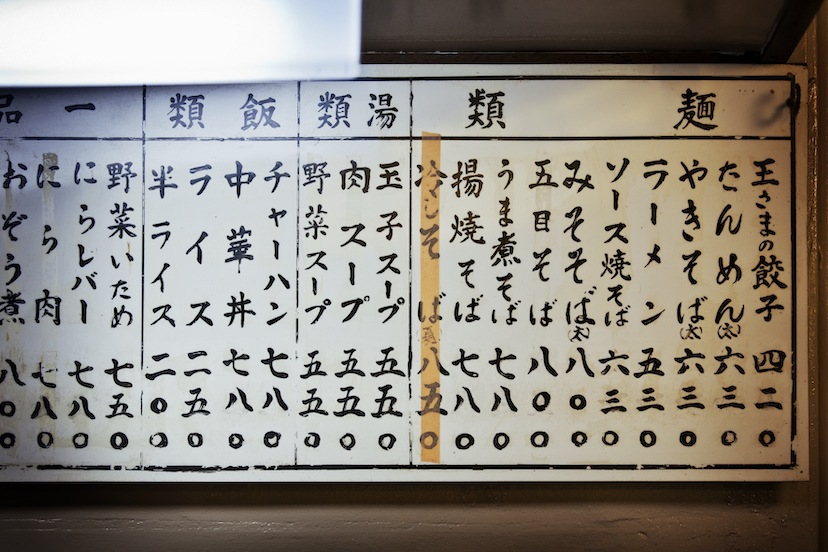 麺類
王さまの餃子 四二〇
たんめん(太) 六三〇
やきそば(太) 六三〇
ラーメン 五三〇
ソース焼そば 六三〇
みそそば(太) 八〇〇
五目そば 八〇〇
うま煮そば 七八〇
揚焼そば 七八〇
冷しそば 八五〇
湯類
玉子スープ 五五〇
肉スープ 五五〇
野菜スープ 五五〇
飯類
チャーハン 七八〇
中華丼 七八〇
ライス 二五〇
半ライス 二〇〇
一品
野菜いため 七五〇
にらレバー 七八〇
にら肉 七八〇
おぞう煮 八〇〇